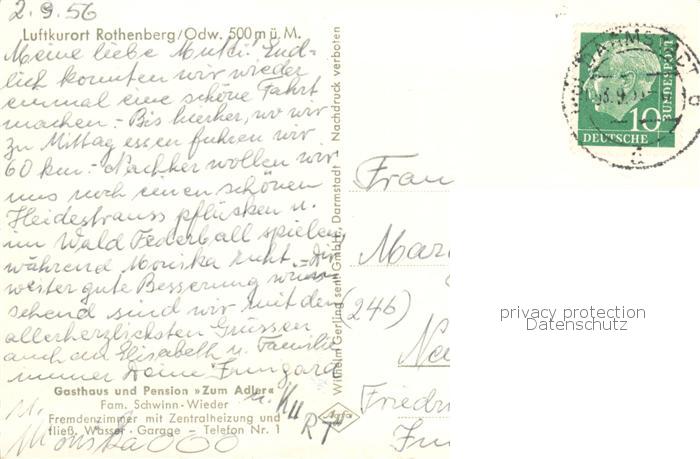 2.9.56
Luftkurort Rothenberg/Odw. 500 m ü. M.
Meine liebe Mutti! End-
lich konnten wir wieder
einmal eine schöne Fahrt
machen. - Bis hierher, wo wir
zu Mittag essen fuhren wir
60 km. - Nachher wollen wir
uns noch einen schönen
Heidestrauss pflücken u.
im Wald Federball spielen
während Monika ruht. - Dir
weiter gute Besserung wün-
schend sind wir mit den
allerherzlichsten Grüssen
auch an Elisabeth u. Familie
immer Deine Irmgard
Gasthaus und Pension »Zum Adler«
Fam. Schwinn-Wieder
Fremdenzimmer mit Zentralheizung und
fließ. Wasser - Garage - Telefon Nr. 1
u.
Monika OOO
Wilhelm Gerling sen. GmbH., Darmstadt - Nachdruck verboten
Agfa
DARMSTADT
10
DEUTSCHE
BUNDESPOST
Frau
Mar
(246)
Friedr
privacy protection
Datenschutz